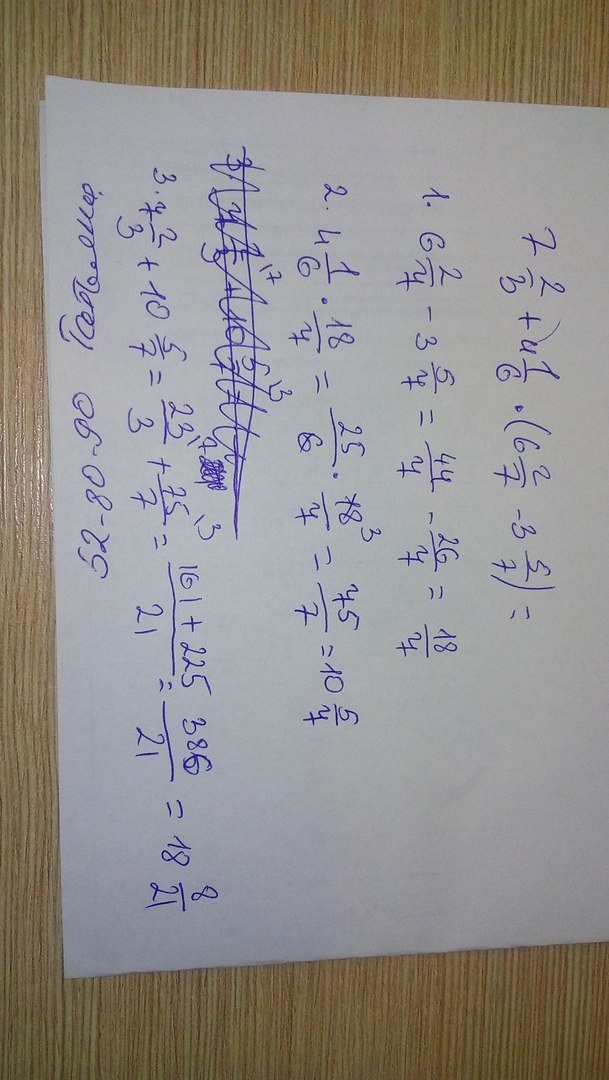 7 2/3 + 4 1/6 · (6 2/7 - 3 5/7) =
1. 6 2/7 - 3 5/7 = 44/7 - 26/7 = 18/7
2. 4 1/6 · 18/7 = 25/6 · 18/7 3 = 75/7 = 10 5/7
3. 7 2/3 + 10 5/7 = 23/3 \7 + 75/7 \3 = 161 + 225/21 = 386/21 = 18 8/21
52-80-90